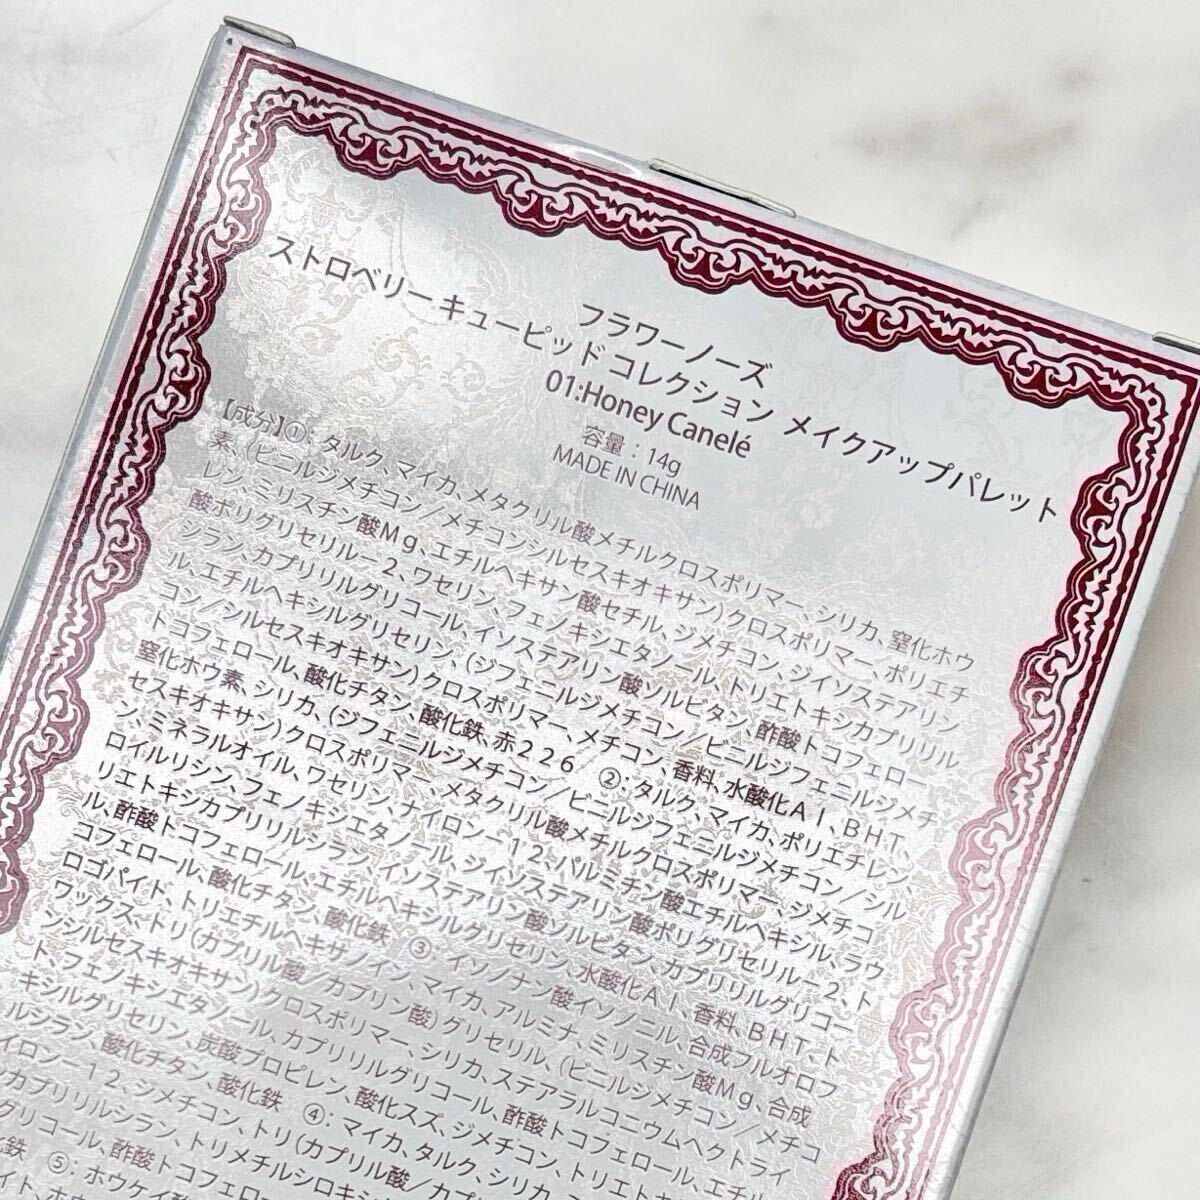 フラワーノーズ
ストロベリーキューピッド コレクション メイクアップパレット
01:Honey Canelé
容量：14g
MADE IN CHINA
【成分】①：タルク、マイカ、メタクリル酸メチルクロスポリマー、シリカ、窒化ホウ
素、(ビニルジメチコン／メチコンシルセスキオキサン)クロスポリマー、ポリエチ
レン、ミリスチン酸Mg、エチルヘキサン酸セチル、ジメチコン、ジイソステアリン
酸ポリグリセリル－2、ワセリン、フェノキシエタノール、トリエトキシカプリリル
シラン、カプリリルグリコール、イソステアリン酸ソルビタン、酢酸トコフェロー
ル、エチルヘキシルグリセリン、(ジフェニルジメチコン／ビニルジフェニルジメチ
コン／シルセスキオキサン)クロスポリマー、メチコン、香料、水酸化Al、BHT、
トコフェロール、酸化チタン、酸化鉄、赤226／②：タルク、マイカ、ポリエチレン、
窒化ホウ素、シリカ、(ジフェニルジメチコン／ビニルジフェニルジメチコン／シル
セスキオキサン)クロスポリマー、メタクリル酸メチルクロスポリマー、ジメチコ
ン、ミネラルオイル、ワセリン、ナイロン－12、パルミチン酸エチルヘキシル、ラウ
ロイルリシン、フェノキシエタノール、ジイソステアリン酸ポリグリセリル－2、ト
リエトキシカプリリルシラン、イソステアリン酸ソルビタン、カプリリルグリコー
ル、酢酸トコフェロール、エチルヘキシルグリセリン、水酸化Al、香料、BHT、ト
コフェロール、酸化チタン、酸化鉄 ③：イソノナン酸イソノニル、合成フルオロフ
ロゴパイト、トリエチルヘキサノイン、マイカ、アルミナ、ミリスチン酸Mg、合成
ワックス、トリ(カプリル酸／カプリン酸)グリセリル、(ビニルジメチコン／メチコ
ンシルセスキオキサン)クロスポリマー、シリカ、ステアラルコニウムヘクトライ
ト、フェノキシエタノール、カプリリルグリコール、酢酸トコフェロール、エチルヘ
キシルグリセリン、炭酸プロピレン、酸化スズ、ジメチコン、トリエトキ
ルシラン、酸化チタン、酸化鉄 ④：マイカ、タルク、シリカ、
イロン－12、ジメチコン、トリ(カプリル酸／カプ
カプリリルシラン、トリメチルシロキシ
コール、酢酸トコフェロ
化鉄 ⑤：ホウケイ酸